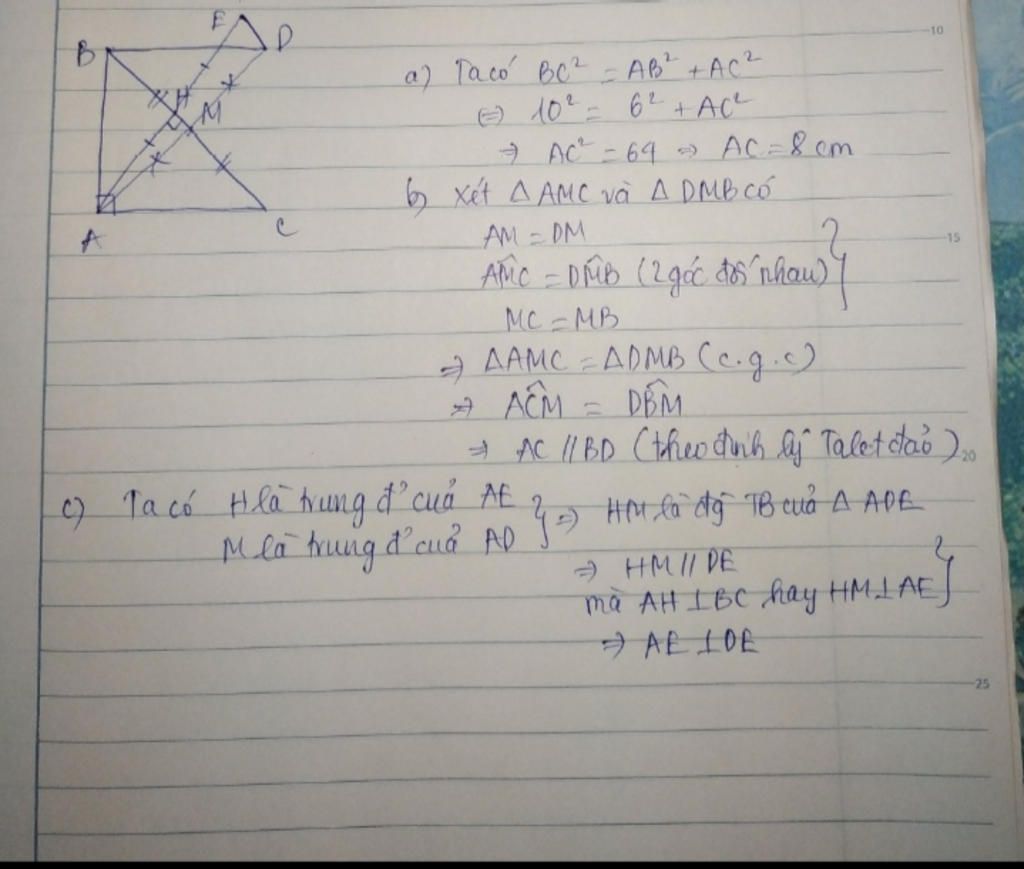 E
B
D
H
M
A
C
10
a) Ta có BC² = AB² + AC²
⇔ 10² = 6² + AC²
⇒ AC² = 64 ⇒ AC = 8 cm
b) Xét △AMC và △DMB có
AM = DM
15
AM̂C = DM̂B (2 góc đối nhau) }
MC = MB
⇒ △AMC = △DMB (c.g.c)
⇒ AĈM = DB̂M
⇒ AC // BD (theo định lý Talet đảo)
20
c) Ta có H là trung đ' của AE } ⇒ HM là đg TB của △ ADE
M là trung đ' của AD
⇒ HM // DE
mà AH ⊥ BC hay HM ⊥ AE }
⇒ AE ⊥ DE
25